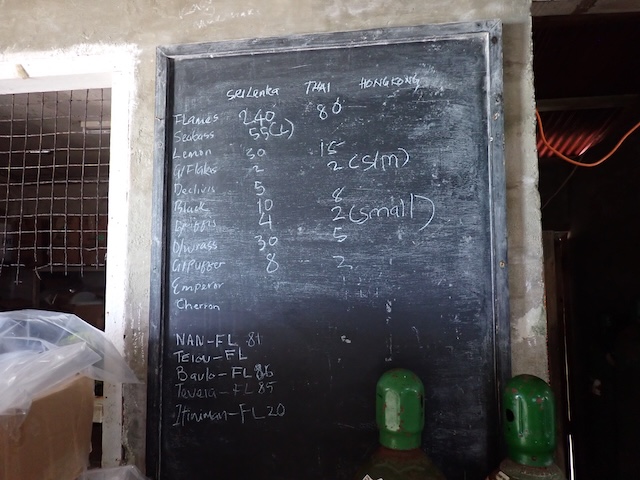 SRILenka THAI HONGKONG
Flames 240 80
Seabass 55(L)
Lemon 30 15
G/Flakes 2 2(S/M)
Declivis 5 8
Black 10 2(small)
4 5
D/wrass 30
G/Puffer 8 2
Emperor
Chevron
NAN-FL 81
TEIAU-FL
Baulo-FL 86
Tevera-FL 85
-FL 20